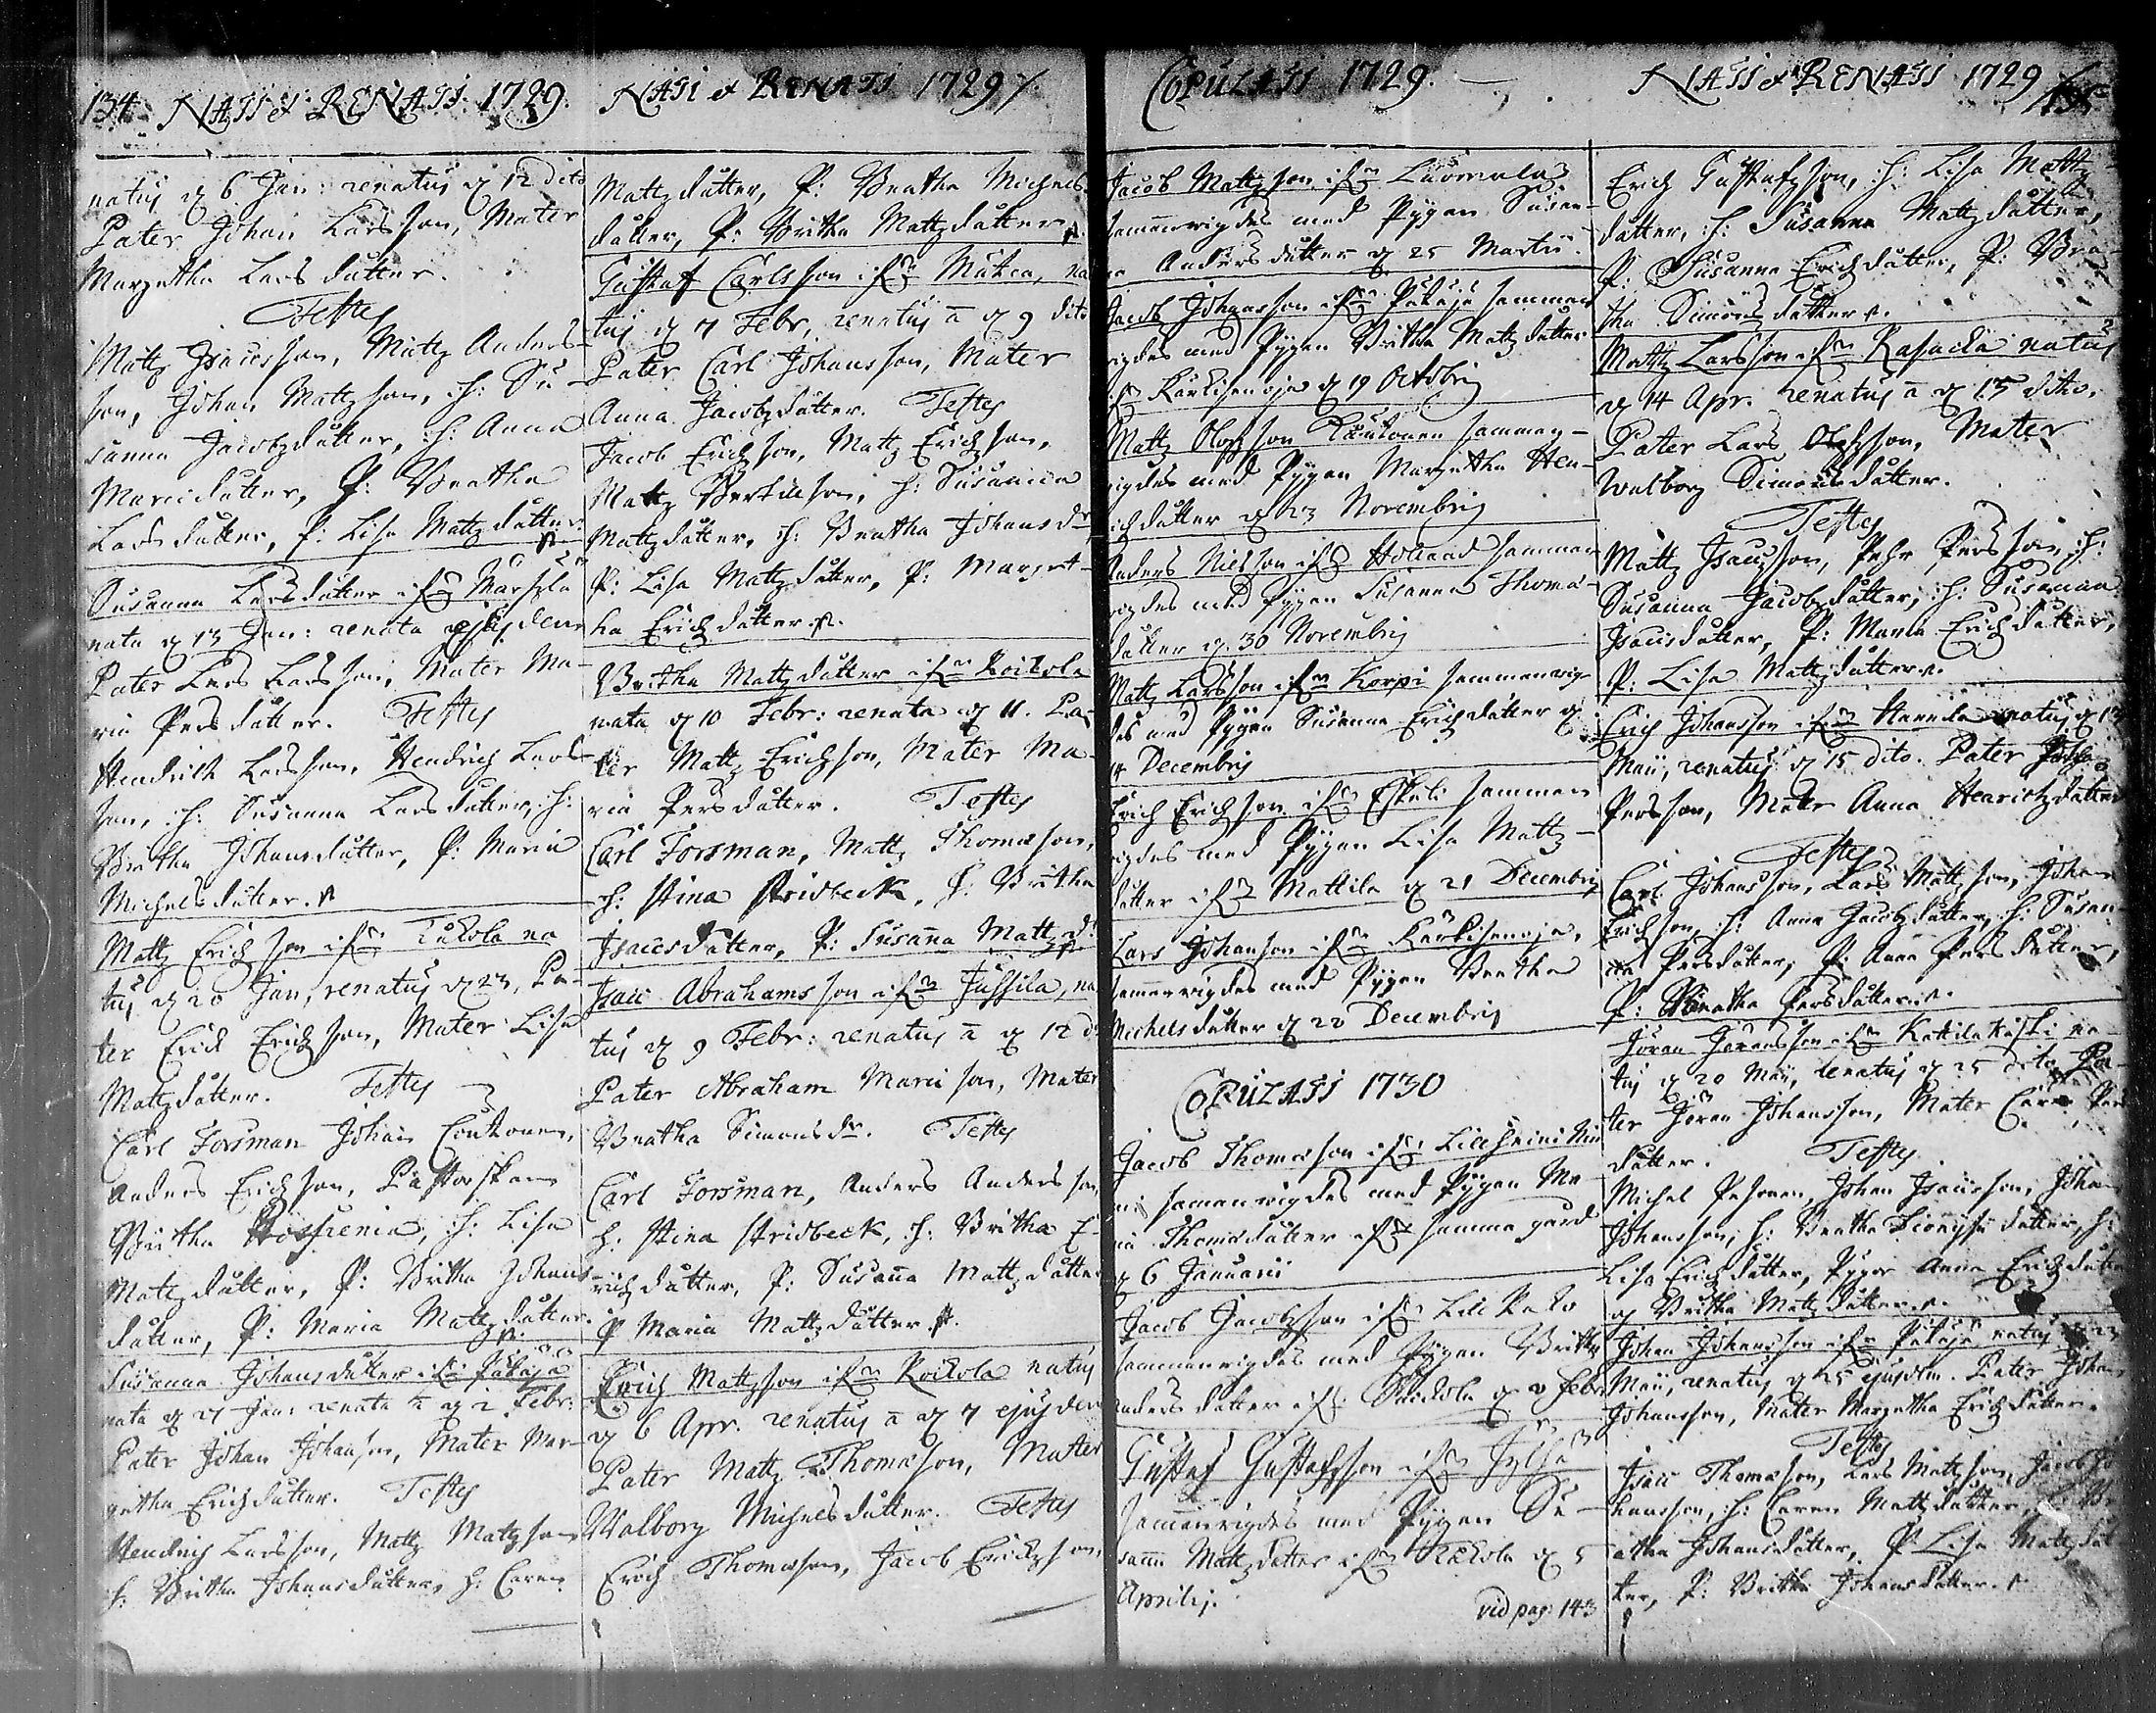 134 NATI & RENATI 1729.
natus d 6 Jan: renatus d 12 dito
Pater Johan Larsson, Mater
Margetha Lars dåtter.
Testes
Mattz Isacsson, Mattz Anders-
son, Johan Mattzson, h: Su-
sanna Jacobzdåtter, h: Anna
Marcidåtter, P: Beatha
Larsdåtter, P: Lisa Mattzdåtter.
Susanna Larsdåtter ifrån
nata d 13 Jan: renata ejusdem
Pater Lars Larsson, Mater Ma-
ria Persdåtter. Testes
Hendrich Larsson, Hendrich Lars-
son, h: Susanna Larsdåtter, h:
Britha Johansdåtter, P: Maria
Michelsdåtter.
Mattz Erichson ifrån Kukola na
tus d 20 Jan, renatus d 23, Pa-
ter Erich Erichson, Mater Lisa
Mattzdåtter. Testes
Carl Forsman Johan
Anders Erichson, Pastorskan
Britha h: Lisa
Mattzdåtter, P: Britha Johans
dåtter, P: Maria Mattzdåtter.
Susanna Johansdåtter ifrån Pukaja
nata d 27 Jan: renata ā d 2 Febr:
Pater Johan Johanson, Mater Mar-
getha Erichdåtter. Testes
Hendrich Larsson, Mattz Matzson
h: Britha Johansdåtter, h: Caren
NATI & RENATI 1729
Mattzdåtter, P: Beatha Michels-
dåtter, P: Britha Mattzdåtter.
Gustaf Carlsson ifrån na
tus d 7 Febr, renatus ā d 9 dito
Pater Carl Johansson, Mater
Anna Jacobzdåtter. Testes
Jacob Erichson, Mattz Erichson,
Mattz Bertilson, h: Susanna
Mattzdåtter, h: Beatha Johansdr
P: Lisa Mattzdåtter, P: Marget-
ha Erichdåtter.
Britha Mattzdåtter ifrån Roikola
nata d 10 Febr: renata d 11. Pa-
ter Mattz Erichson, Mater Ma-
ria Persdåtter. Testes
Carl Forsman, Mattz Thomasson,
h: Stina Stridbeck, h: Britha
Isacsdåtter, P: Susanna Mattzdr
Isac Abrahamsson ifrån Jussila, na
tus d 9 Febr: renatus ā d 12 do
Pater Abraham Marcison, Mater
Beatha Simonsdr. Testes
Carl Forsman, Anders Anderson,
h: Stina Stridbeck, h: Britha E-
richdåtter, P: Susanna Mattzdåtter
P Maria Mattzdåtter.
Erich Mattzson ifrån Roikola natus
d 6 Apr. renatus ā d 7 ejusdem
Pater Mattz Thomasson, Mater
Walborg Michelsdåtter. Testes
Erich Thomasson, Jacob Erichson,
COPULATI 1729.
Jacob Mattzson ifrån Luomalas
sammanvigdes med Pygan Susan-
na Andersdåtter d 25 Martii.
Jacob Johansson ifrån Pukaja samman
vigdes med Pygan Britha Mattzdåtter
ifr Karkisenoja d 19 Octobris
Mattz Olofson samman-
vigdes med Pygan Margetha Hen-
richdåtter d 23 Novembris
Anders Nielson ifrån samman
vigdes med Pygan Susanna Thoma-
dåtter d. 30 Novembris
Mattz Larsson ifrån Korpi sammanvig-
des med Pygan Susanna Erichdåtter d
14 Decembris
Erich Erichson ifrån Eskeli samman
vigdes med Pygan Lisa Mattz-
dåtter ifrån Mattila d 21 Decembris
Lars Johanson ifrån Karkisenoja,
sammanvigdes med Pygan Beatha
Michelsdåtter d 28 Decembris
COPULATI 1730
Jacob Thomasson ifrån
sammanvigdes med Pygan Ma-
ria Thomadåtter ifrån samma gård
d 6 Januarii
Jacob Jacobzson ifrån
sammanvigdes med Pygan Britha
Andersdåtter ifr: d 2 Febr
Gustaf Gustafsson ifrån
sammanvigdes med Pygan Su-
sanna Mattzdåtter ifrån Kukola d 5
Aprilis.
vid pag: 143
NATI & RENATI 1729 135
Erich Gustafsson, h: Lisa Mattz
dåtter, h: Susanna Mattzdåtter,
P: Susanna Erichdåtter, P: Bri-
tha Simonsdåtter.
Mattz Larsson ifrån natus
d 14 Apr. renatus ā d 15 dito.
Pater Lars Olofsson, Mater
Walborg Simonsdåtter.
Testes
Mattz Isacsson, Pehr Persson, h:
Susanna Jacobzdåtter, h: Susanna
Isacsdåtter, P: Maria Erichdåtter,
P: Lisa Mattzdåtter.
Erich Johansson ifrån natus d 13
Maii, renatus d 15 dito. Pater Johan
Persson, Mater Anna Henrichzdåtter
Testes
Carl Johansson, Lars Mattzson, Johan
Erichson, h: Anna Jacobzdåtter, h: Susan-
na Persdåtter, P: Anna Persdåtter,
P: Beatha Persdåtter.
Jöran Jöransson ifrån na-
tus d 20 Maii, renatus d 25 dito Pa-
ter Jöran Johansson, Mater Caren Pers
dåtter. Testes
Michel Johan Isacsson, Johan
Johansson, h: Beatha Dionysii dåtter, h:
Lisa Erichdåtter, Pygor Anna Erichdåtter
og Britha Mattzdåtter.
Johan Johansson ifrån Pukaja natus d 23
Maii, renatus d 25 ejusdem. Pater Johan
Johansson, Mater Margetha Erichdåtter.
Testes
Isac Thomasson, Lars Mattzson, Jacob Jo
hansson, h: Caren Mattzdåtter, h: Be
atha Johansdåtter, P Lisa Mattzdåt
ter, P: Britha Johansdåtter.